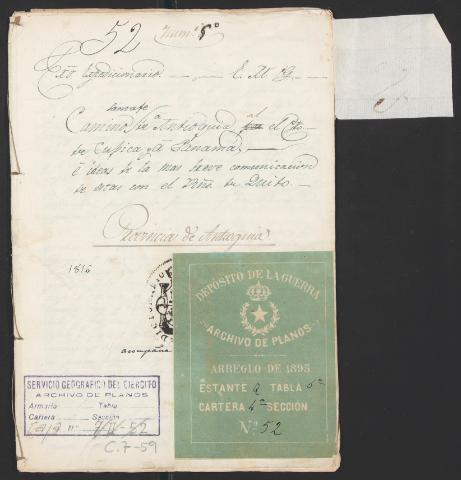 52 Num.º 5º
Exto Expedicionario. E. M. G.
Santafe
Camino de Antioquia al el Cto
de Cupica y a Panamá.
é ideas de la mas breve comunicacion
de estas con el Rno de Quito.
Provincia de Antioquia
1816
acompaña
DEPÓSITO DE LA GUERRA
ARCHIVO DE PLANOS
ARREGLO DE 1895
ESTANTE a TABLA 5ª
CARTERA 4ª SECCIÓN
Nº 52
SERVICIO GEOGRAFICO DEL EJERCITO
ARCHIVO DE PLANOS
Armario Tabla
Cartera Sección
Caja nº
C.7-59